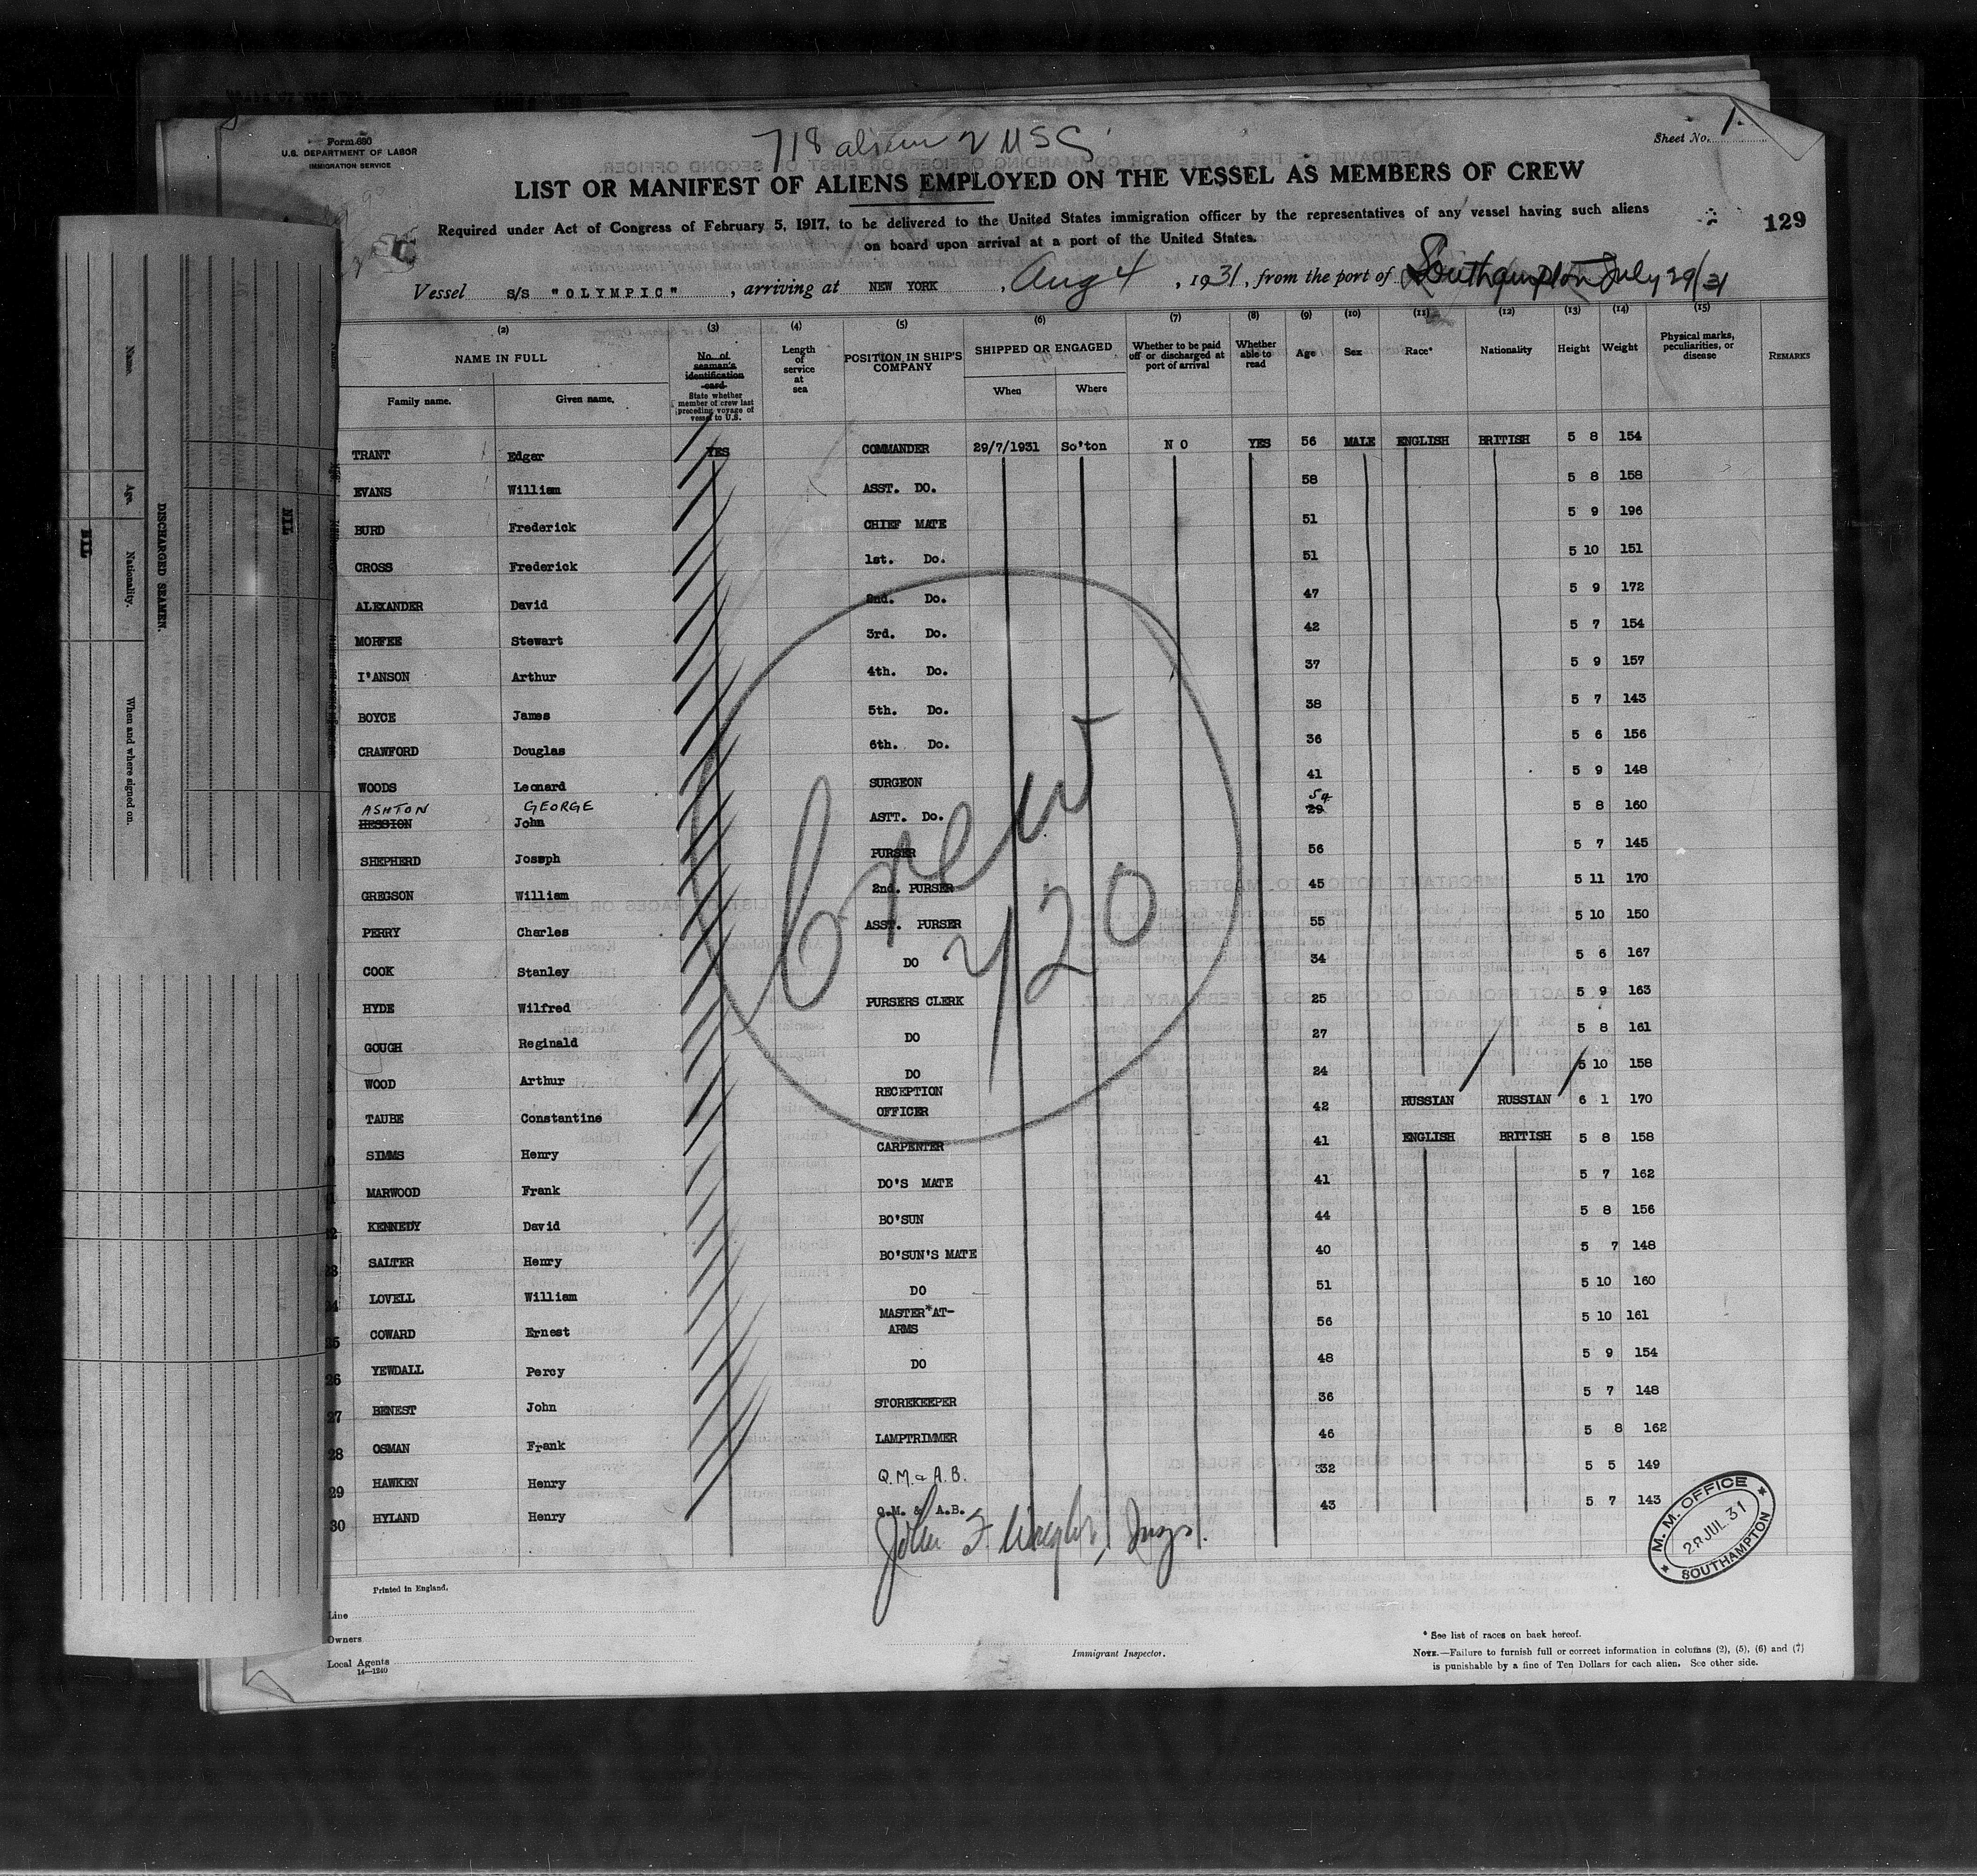 Form 680
U.S. DEPARTMENT OF LABOR
IMMIGRATION SERVICE
718 aliens 2 USC
Sheet No. 1.
LIST OR MANIFEST OF ALIENS EMPLOYED ON THE VESSEL AS MEMBERS OF CREW
129
Required under Act of Congress of February 5, 1917, to be delivered to the United States immigration officer by the representatives of any vessel having such aliens
on board upon arrival at a port of the United States.
Vessel S/S "OLYMPIC", arriving at NEW YORK, Aug 4, 1931, from the port of Southampton July 29/31
(2) (3) (4) (5) (6) (7) (8) (9) (10) (11) (12) (13) (14) (15)
NAME IN FULL
Family name. Given name.
No. of seaman's identification card
State whether member of crew last preceding voyage of vessel to U.S.
Length of service at sea
POSITION IN SHIP'S COMPANY
SHIPPED OR ENGAGED
When Where
Whether to be paid off or discharged at port of arrival
Whether able to read
Age Sex Race* Nationality Height Weight
Physical marks, peculiarities, or disease
REMARKS
TRANT Edgar YES COMMANDER 29/7/1931 So'ton NO YES 56 MALE ENGLISH BRITISH 5 8 154
EVANS William ASST. DO. 58 5 8 158
BURD Frederick CHIEF MATE 51 5 9 196
CROSS Frederick 1st. Do. 51 5 10 151
ALEXANDER David 2nd. Do. 47 5 9 172
MORFEE Stewart 3rd. Do. 42 5 7 154
I'ANSON Arthur 4th. Do. 37 5 9 157
BOYCE James 5th. Do. 38 5 7 143
CRAWFORD Douglas 6th. Do. 36 5 6 156
WOODS Leonard SURGEON 41 5 9 148
ASHTON GEORGE
HESSION John ASTT. Do. 29 5 8 160
SHEPHERD Joseph PURSER 56 5 7 145
GREGSON William 2nd. PURSER 45 5 11 170
PERRY Charles ASST. PURSER 55 5 10 150
COOK Stanley DO 34 5 6 167
HYDE Wilfred PURSERS CLERK 25 5 9 163
GOUGH Reginald DO 27 5 8 161
WOOD Arthur DO 24 5 10 158
TAUBE Constantine RECEPTION OFFICER 42 RUSSIAN RUSSIAN 6 1 170
SIMMS Henry CARPENTER 41 ENGLISH BRITISH 5 8 158
MARWOOD Frank DO'S MATE 41 5 7 162
KENNEDY David BO'SUN 44 5 8 156
SALTER Henry BO'SUN'S MATE 40 5 7 148
LOVELL William DO 51 5 10 160
25 COWARD Ernest MASTER*AT-ARMS 56 5 10 161
26 YEWDALL Percy DO 48 5 9 154
27 BENEST John STOREKEEPER 36 5 7 148
28 OSMAN Frank LAMPTRIMMER 46 5 8 162
29 HAWKEN Henry Q.M. & A.B. 32 5 5 149
30 HYLAND Henry Q.M. & A.B. 43 5 7 143
Crew
720
M.M. OFFICE
28 JUL 31
SOUTHAMPTON
Printed in England.
Line
Owners
Local Agents
14—1240
Immigrant Inspector.
* See list of races on back hereof.
NOTE.—Failure to furnish full or correct information in columns (2), (5), (6) and (7)
is punishable by a fine of Ten Dollars for each alien. See other side.
DISCHARGED SEAMEN.
Name.
Age.
Nationality.
When and where signed on.
NIL
NIL